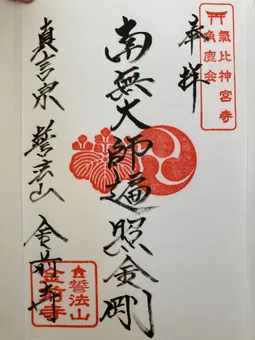 氣比神宮寺
角鹿会
奉拝
南無大師遍照金剛
真言宗 誓法山 金前寺
誓法山
金前寺